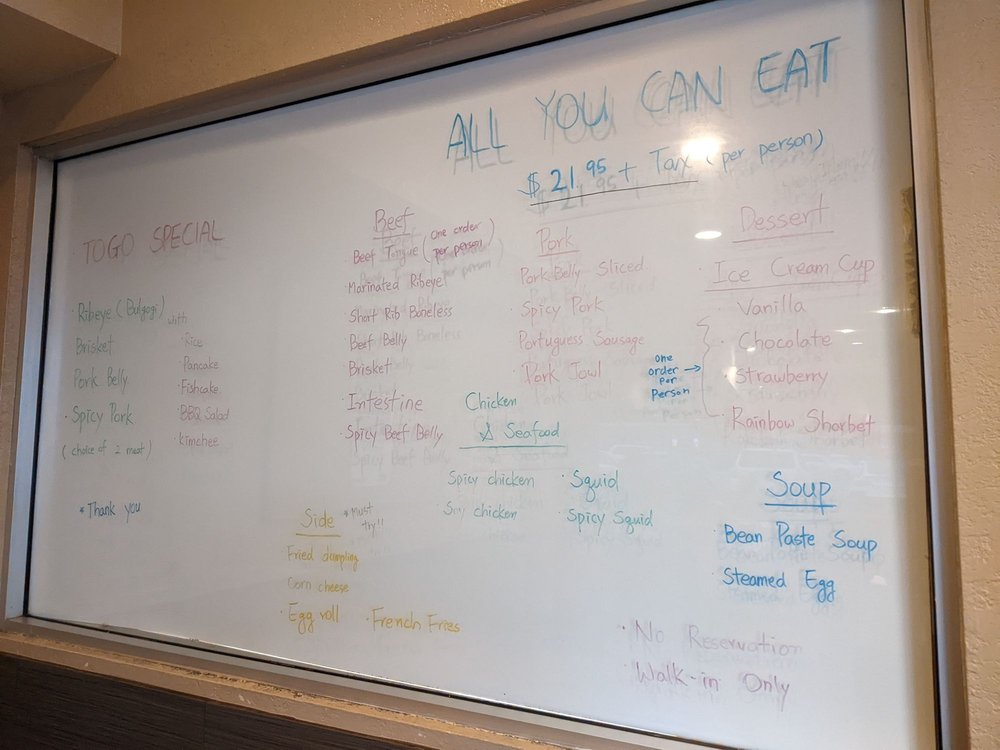 ALL YOU CAN EAT
$21.95 + Tax (per person)
TOGO SPECIAL
Ribeye (Bulgogi) with
Brisket
Pork Belly
Spicy Pork
(choice of 2 meat)
Rice
Pancake
Fishcake
BBQ Salad
Kimchee
*Thank you
Beef
Beef Tongue (one order per person)
Marinated Ribeye
Short Rib Boneless
Beef Belly
Brisket
Intestine
Spicy Beef Belly
Pork
Pork Belly Sliced
Spicy Pork
Portuguess Sausage
Pork Jowl
Chicken
& Seafood
Spicy chicken
Soy chicken
Squid
Spicy Squid
Dessert
Ice Cream Cup
Vanilla
Chocolate
Strawberry
Rainbow Sharbet
one
order →
per
person
Side
*Must
try!!
Fried dumpling
Corn cheese
Egg roll
French Fries
Soup
Bean Paste Soup
Steamed Egg
No Reservation
Walk-in Only